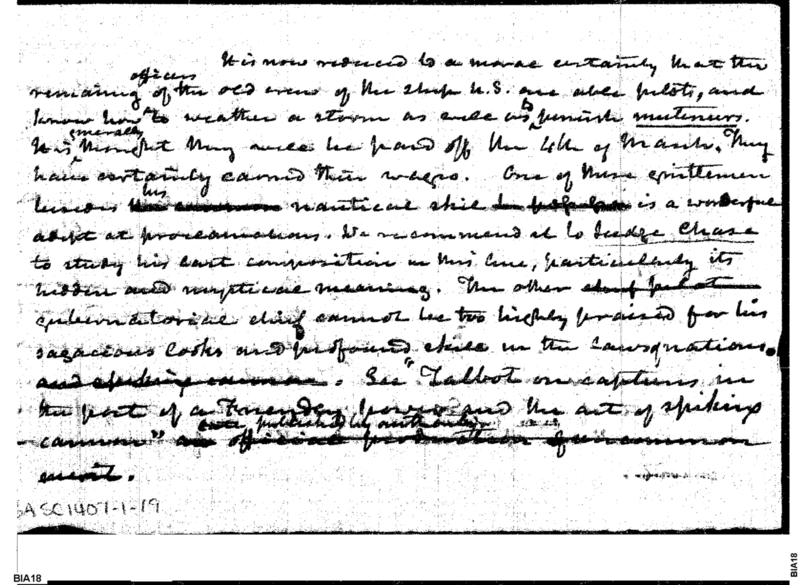 It is now reduced to a moral certainty that the
officers
remaining of the old crew of the ship U.S. are able pilots, and
know how to weather a storm as well as to punish mutineers.
generally
It is thought they will be paid off the 4th of March. They
have certainly earned their wages. One of these gentlemen
his
besides his common nautical skill is a wonderful
adept at proclamations. We recommend it to Judge Chase
to study his last composition in this line, particularly its
hidden and mystical meaning. The other chief pilot
gubernatorial chief cannot be too highly praised for his
sagacious looks and profound skill in the laws of nations.
and spiking cannon. See "Talbot on captures in
the port of a Friendly power and the art of spiking
published by authority
cannon" an official production of uncommon
merit.
SC1407-1-19
BIA18
BIA18